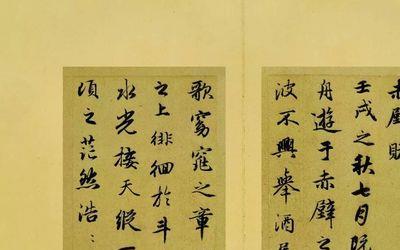 赤壁賦
壬戌之秋七月既
舟遊于赤壁之
波不興舉酒
歌窈窕之章
之上徘徊於斗
水光接天縱一
頃之茫然浩〻